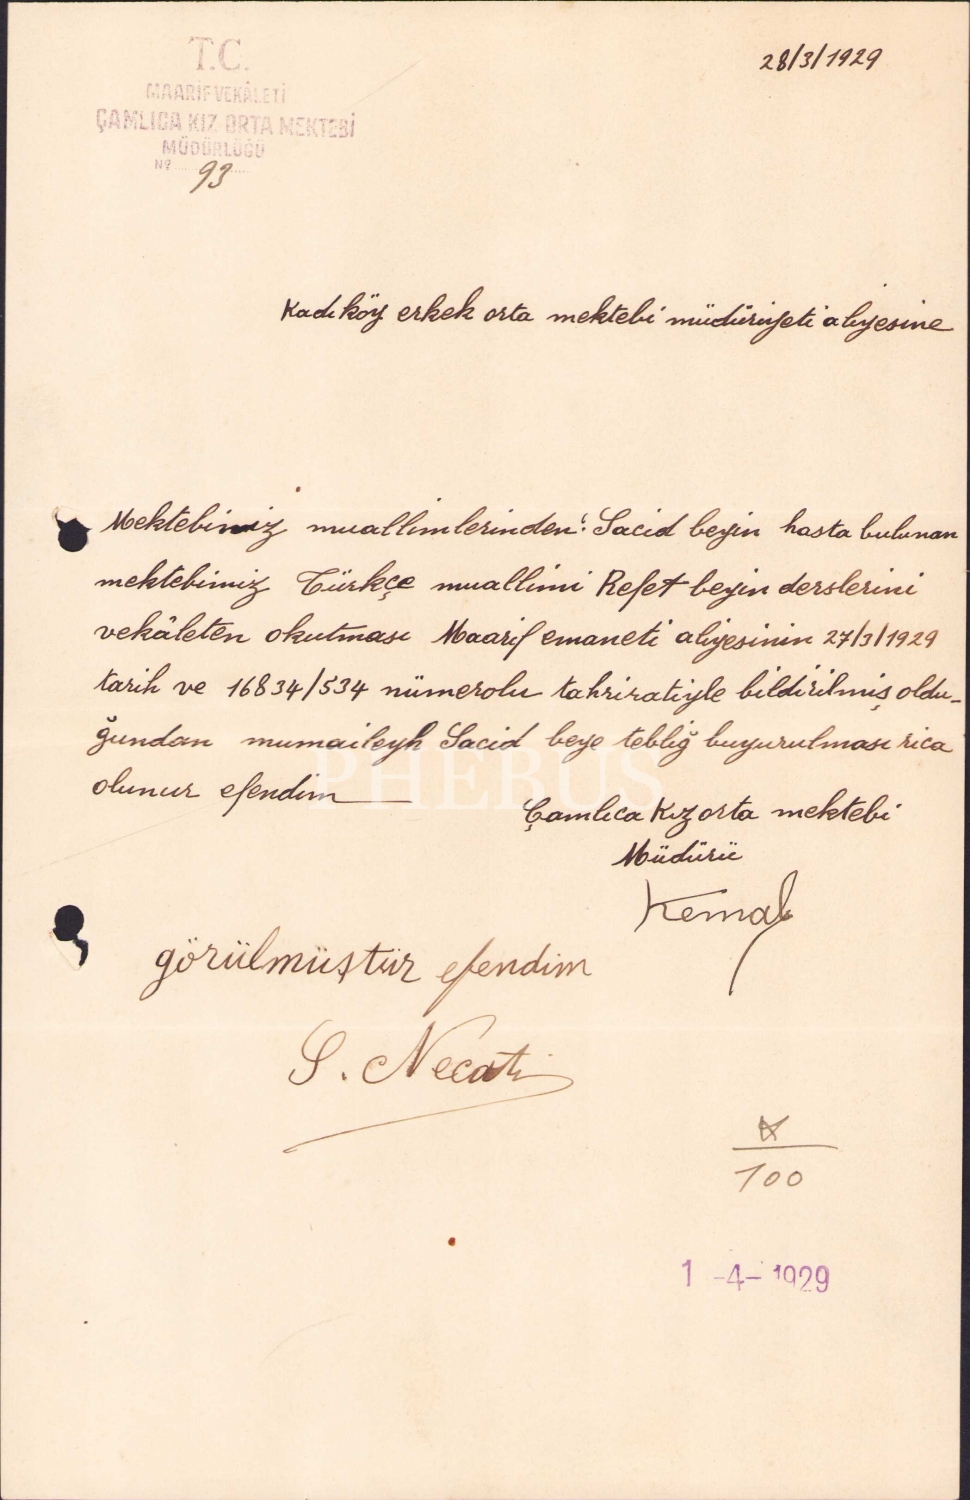 T.C.
MAARİF VEKÂLETİ
ÇAMLICA KIZ ORTA MEKTEBİ
MÜDÜRLÜĞÜ
Nº 93
28/3/1929
Kadıköy erkek orta mektebi müdüriyeti aliyesine
Mektebimiz muallimlerinden: Sacid beyin hasta bulunan
mektebimiz Türkçe muallimi Refet beyin derslerini
vekâleten okutması Maarif emaneti aliyesinin 27/3/1929
tarih ve 16834/534 nümerolu tahriratiyle bildirilmiş oldu-
ğundan mumaileyh Sacid beye tebliğ buyurulması rica
olunur efendim
PHEBUS
Çamlıca Kız orta mektebi
Müdürü
Kemal
görülmüştür efendim
S. Necati
100
1-4-1929